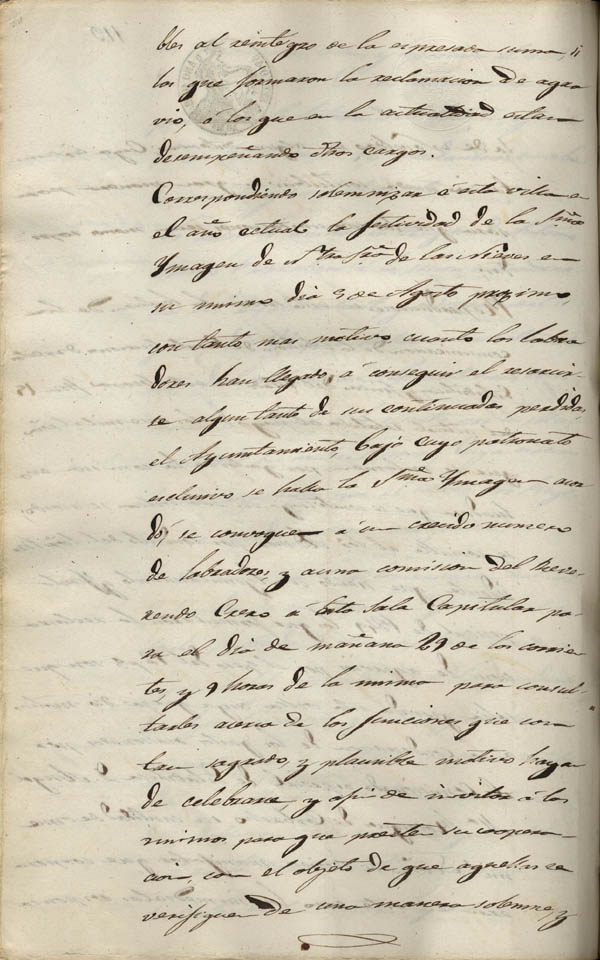 bles al reintegro de la espresada suma, si
los que formaron la reclamacion de agra
vio, ó los que en la actualidad estan
desempeñando dhos cargos.
Correspondiendo solemnizar á esta villa en
el año actual la festividad de la Sma
Ymagen de Ntra Sra de las Nieves en
su mismo dia 5 de Agosto procsimo,
con tanto mas motivo cuanto los labra
dores han llegado á conseguir el resarcir-
se algun tanto de sus continuadas perdidas,
el Ayuntamiento, bajo cuyo patronato
esclusivo se halla la Sma Ymagen acor
dó, se convoquen á un crecido numero
de labradores, y a una comision del Reve-
rendo Clero á esta sala Capitular pa-
ra el dia de mañana 29 de los corrien
tes y 9 horas de la misma para consul-
tarles acerca de las funciones que con
tan sagrado, y plausible motivo hayan
de celebrarse, y a fin de invitar á los
mismos para que presten su coopera-
cion, con el objeto de que aquellas se
verifiquen de una manera solemne, y